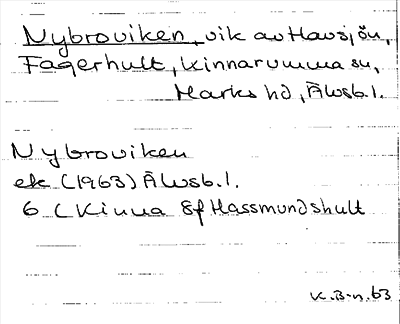 Nybroviken, vik av Havsjön,
Fagerhult, Kinnarumma sn,
Marks hd, Älvsb.l.
Nybroviken
ek (1963) Älvsb.l.
6 C Kinna Sf Hassmundshult
K.B-n.63